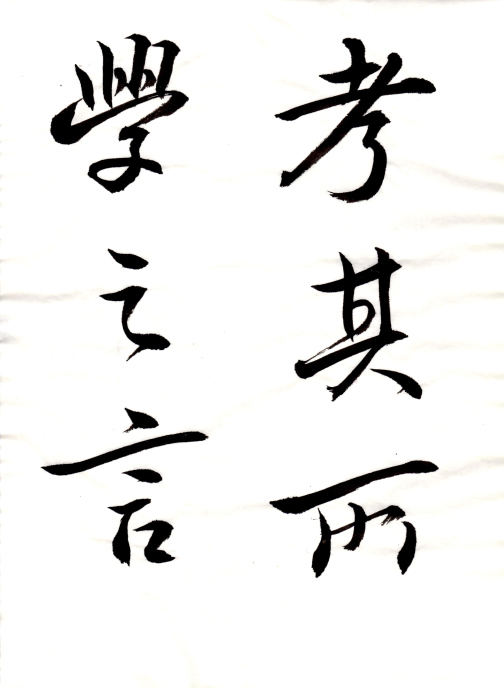 考其所
學之言